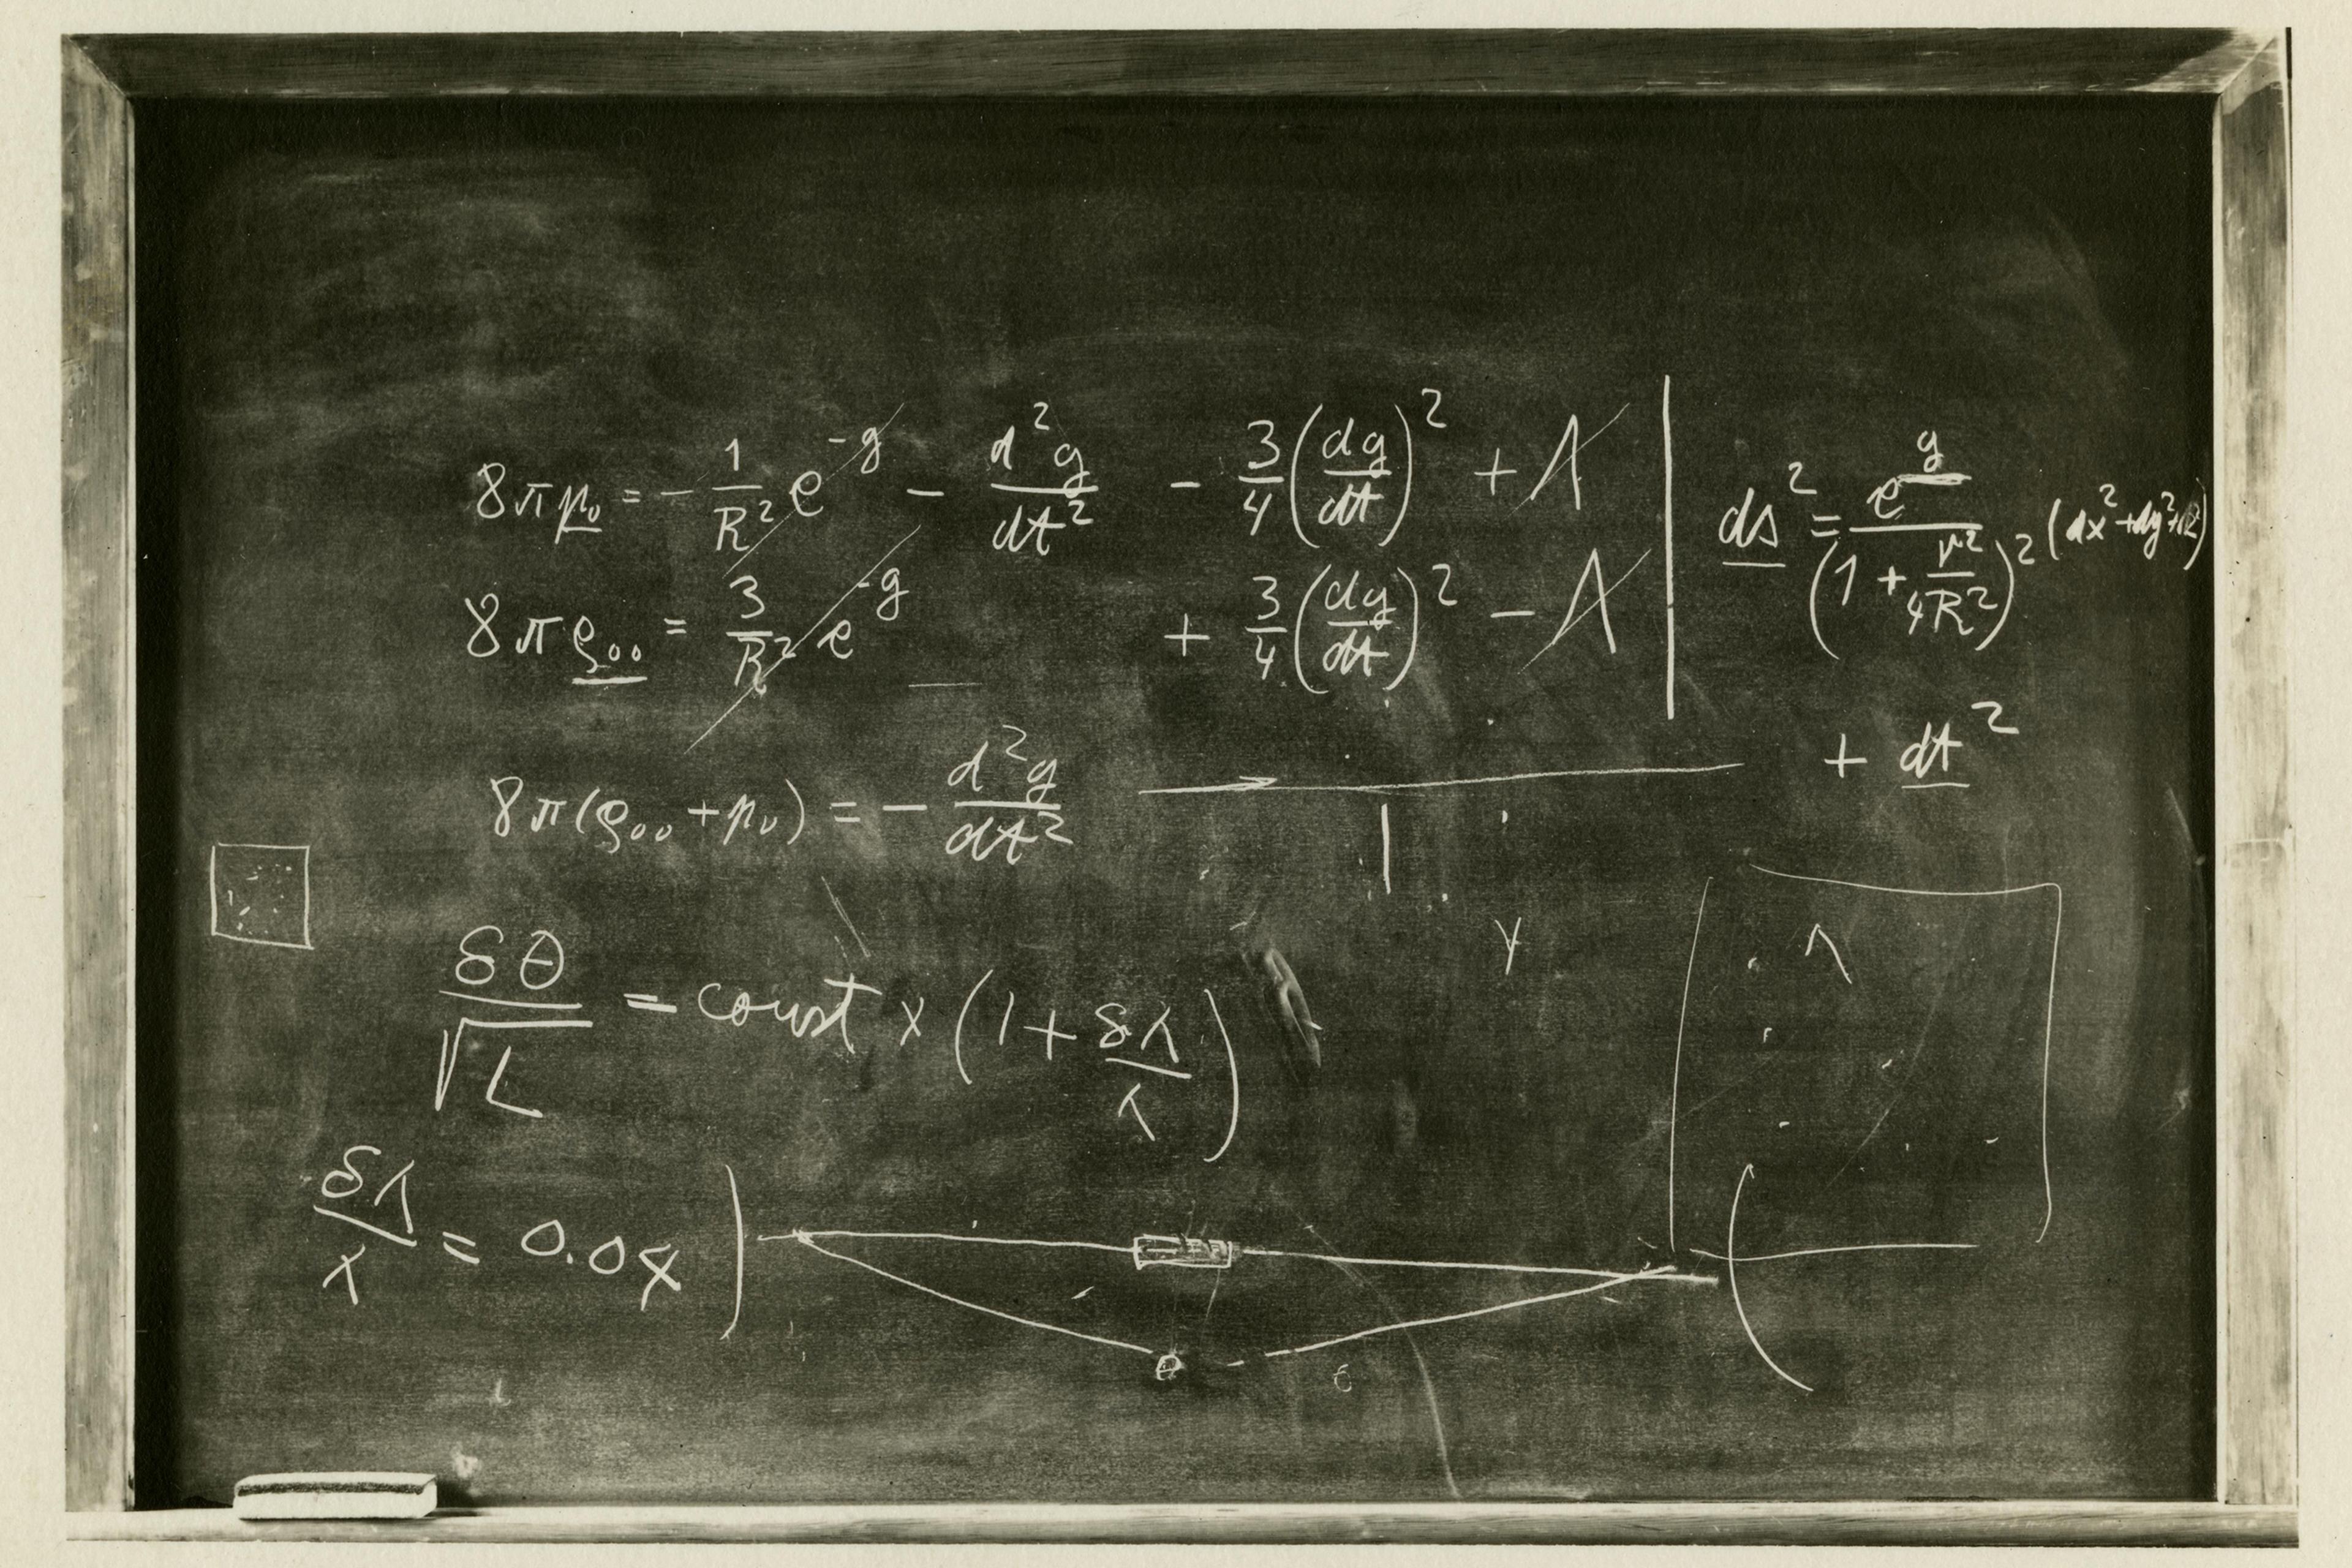 8πp₀ = - 1/R² e^-g - d²g/dt² - 3/4 (dg/dt)² + Λ
8πρ₀₀ = 3/R² e^-g + 3/4 (dg/dt)² - Λ
ds² = e^g/(1 + r²/4R²)² (dx²+dy²+dz²)
+ dt²
8π(ρ₀₀ + p₀) = - d²g/dt²
δθ/√L = const × (1 + δλ/λ)
δλ/λ = 0.0x